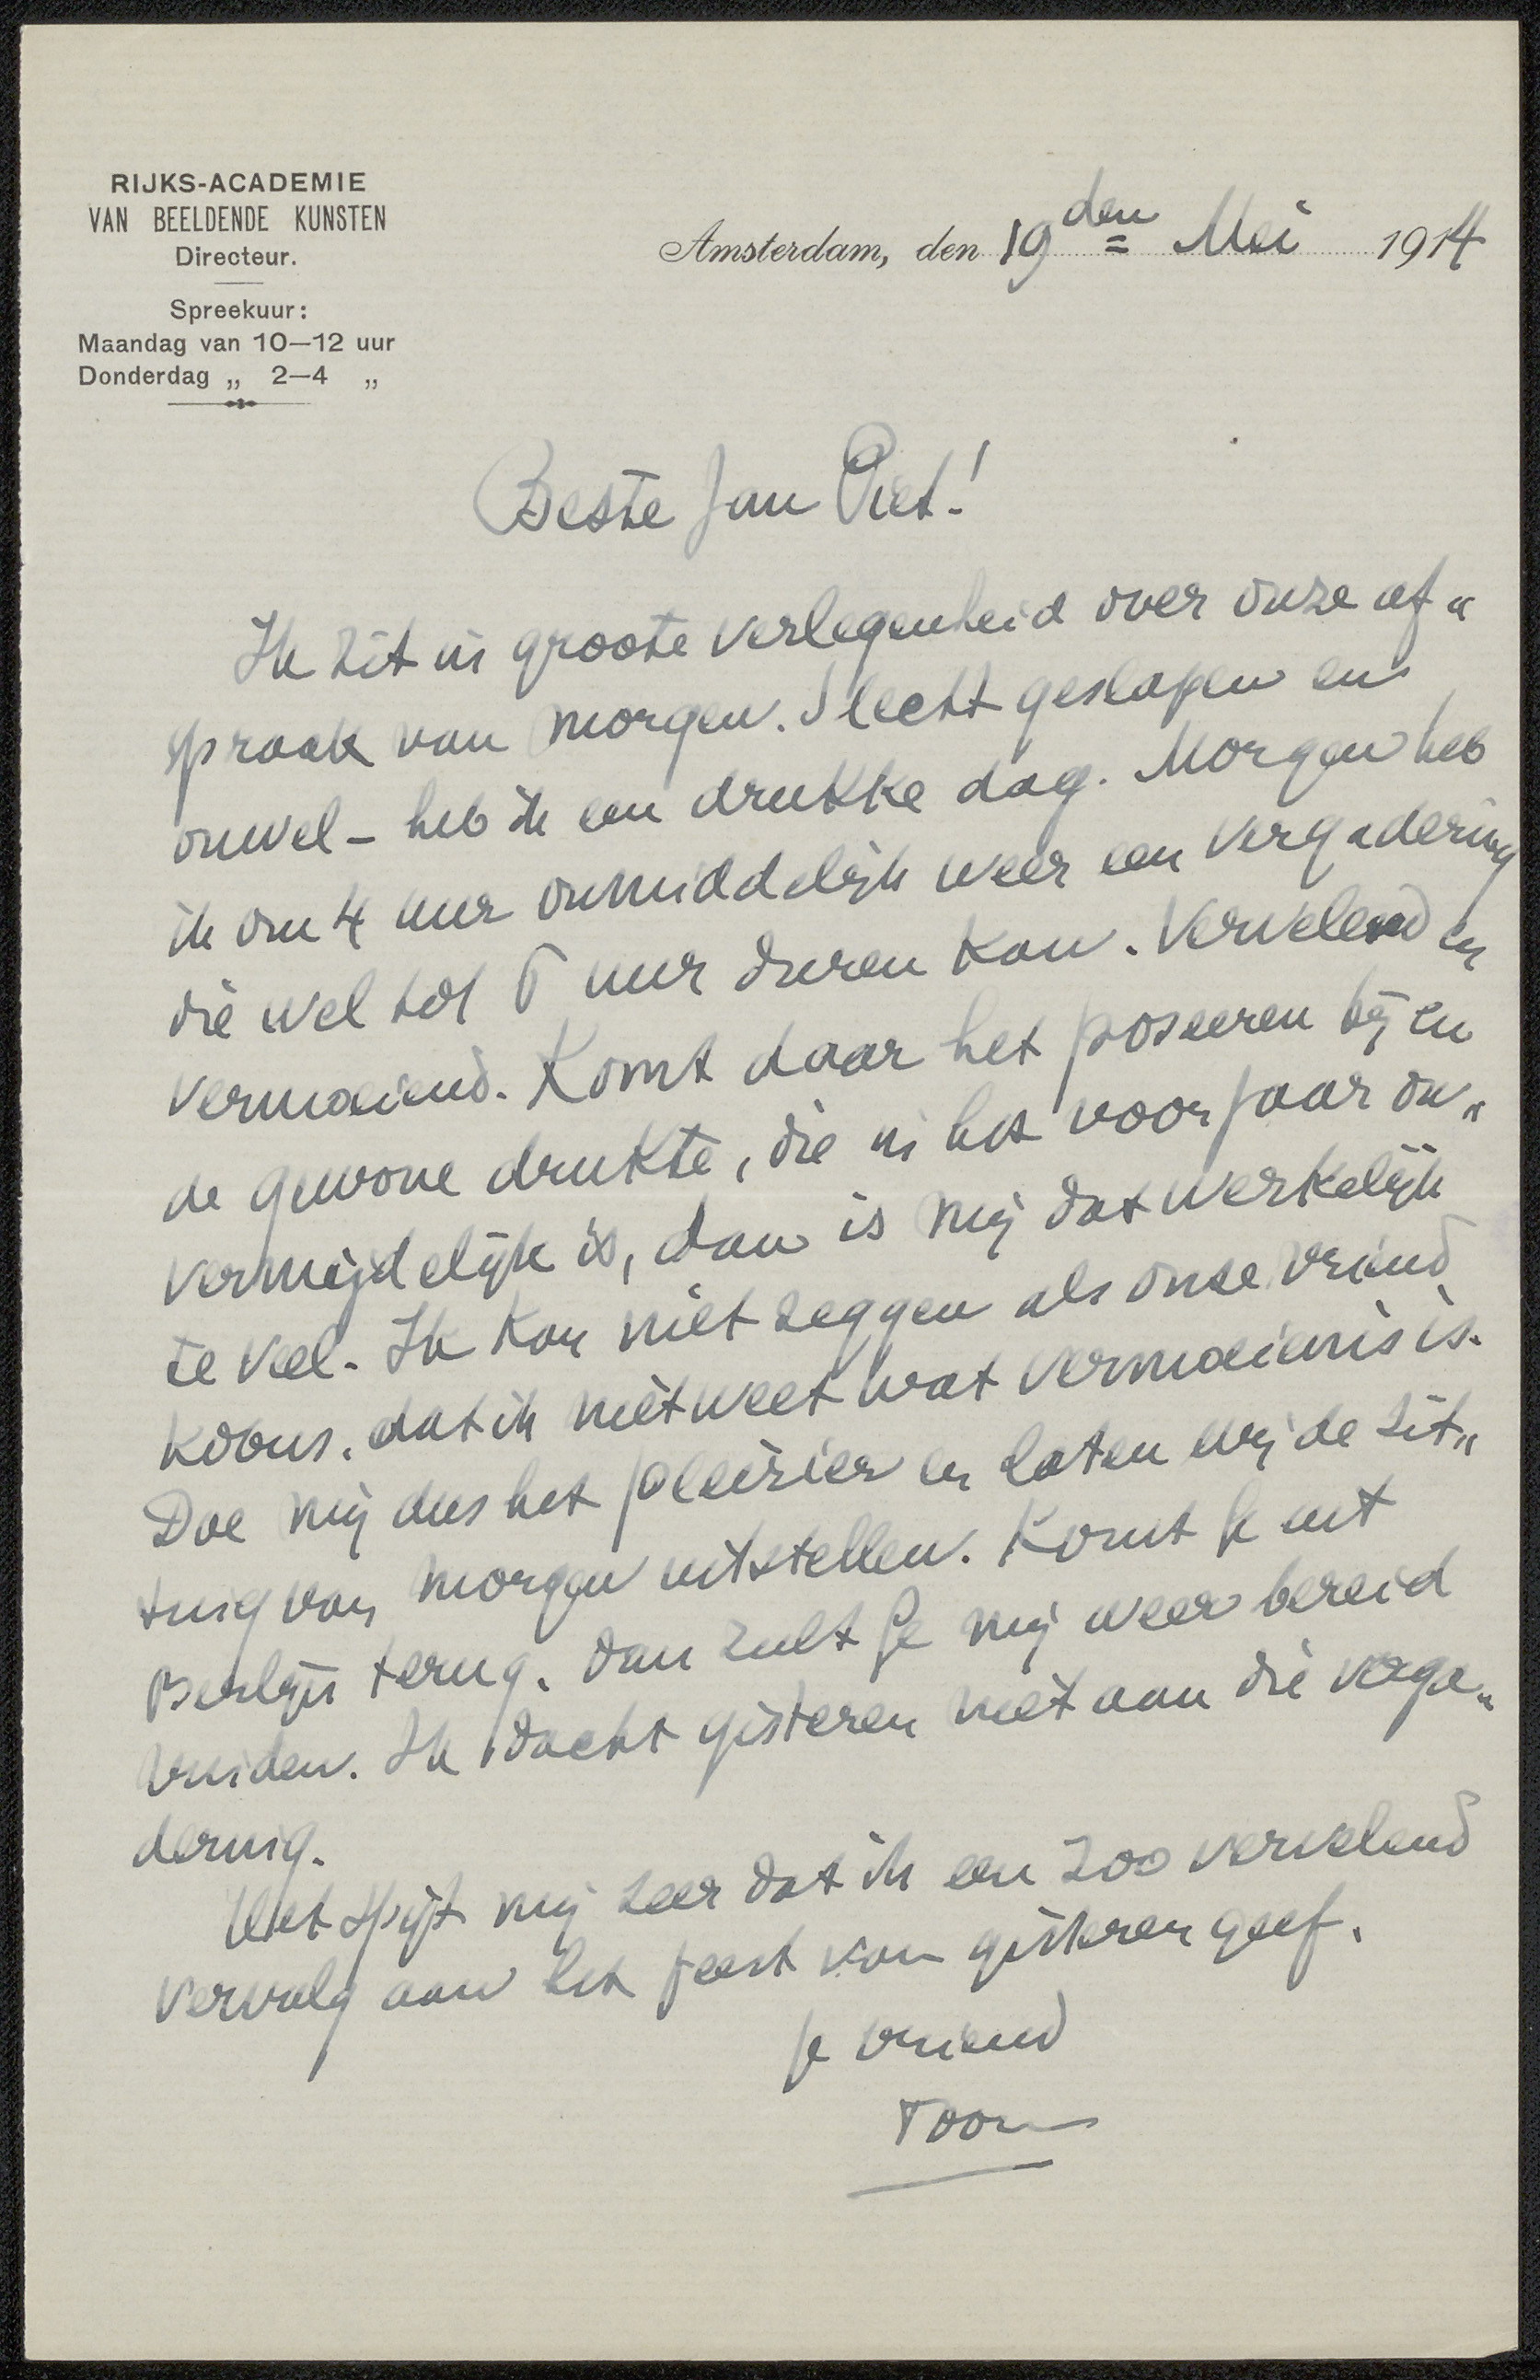 RIJKS-ACADEMIE
VAN BEELDENDE KUNSTEN
Directeur.
Spreekuur:
Maandag van 10—12 uur
Donderdag „ 2—4 „
Amsterdam, den 19den Mei 1914
Beste Jan Piet!
Ik zit in groote verlegenheid over onze af„
spraak van morgen. Slecht geslapen en
onwel – heb ik een drukke dag. Morgen heb
ik om 4 uur onmiddelijk weer een vergadering
die wel tot 6 uur duren kan. Vervelend en
vermoeiend. Komt daar het poseeren bij en
de gewone drukte, die in het voorjaar on„
vermijdelijk is, dan is mij dat werkelijk
te veel. Ik kan niet zeggen als onze vriend
Koous. dat ik niet weet wat vermoeienis is.
Doe mij dus het pleizier en laten wij de zit„
ting van morgen uitstellen. Komt je uit
Berlijn terug. dan zult je mij weer bereid
vinden. Ik dacht gisteren niet aan die verga„
dering.
Het spijt mij zeer dat ik een zoo vervelend
vervolg aan het feest van gisteren geef.
Je vriend
Toon